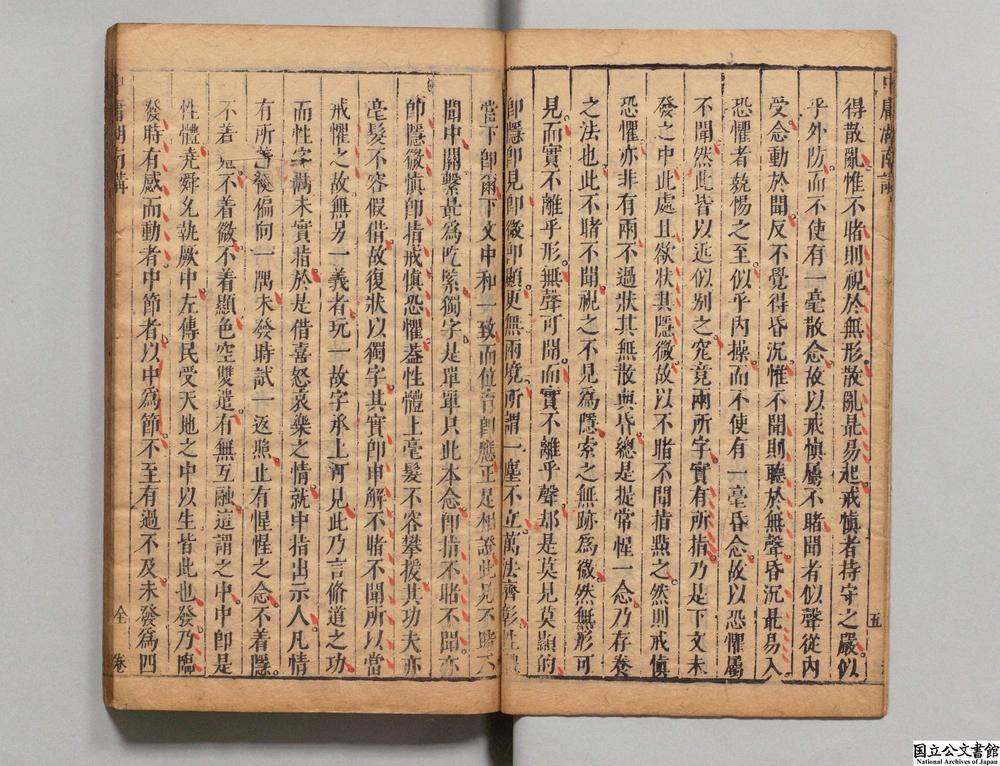 得散亂惟不睹則視於無形散亂最易起戒慎者持守之嚴似
乎外防而不使有一毫散念故以戒慎屬不睹聞者似聲從內
受念動於聞反不覺得昏沉惟不聞則聽於無聲昏沉最易入
恐懼者兢惕之至似乎內操而不使有一毫昏念故以恐懼屬
不聞然此皆以近似別之究竟兩所字實有所指乃是下文未
發之中此處且欲狀其隱微故以不睹不聞指點之然則戒慎
恐懼亦非有兩不過狀其無散與昏總是提常惺一念乃存養
之法也此不睹不聞視之不見為隱索之無跡為微然無形可
見而實不離乎形無聲可聞而實不離乎聲却是莫見莫顯的
即隱即見即微即顯更無兩境所謂一塵不立萬法齊彰性
當下即爾下文中和一致而位育即應正是相證此見不睹不
聞中關繫最為吃緊獨字是單單只此本念即指不睹不聞亦
即隱微慎即指戒慎恐懼蓋性體上毫髮不容攀援其功夫亦
毫髮不容假借故復狀以獨字其實即申解不睹不聞所以當
戒懼之故無另一義者玩一故字承上河見此乃言脩道之功
而性字尚未實指於是借喜怒哀樂之情就中指出示人凡情
有所着便偏向一隅未發時試一返照止有惺惺之念不着隱
不着見不着微不着顯色空雙遣有無互融這謂之中中即是
性體堯舜允執厥中左傳民受天地之中以生皆此也發乃臨
發時有感而動者中節者以中為節不至有過不及未發為四
中庸湖南講
五
中庸湖南講
全
卷
国立公文書館
National Archives of Japan